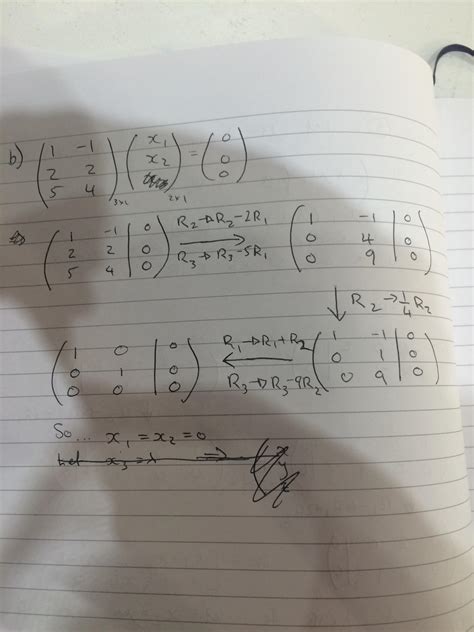 b) ( 1 -1 ; 2 2 ; 5 4 )3x1 ( x1 ; x2 )2x1 = ( 0 ; 0 ; 0 )
( 1 -1 | 0 ; 2 2 | 0 ; 5 4 | 0 ) R2→R2-2R1 R3→R3-5R1 → ( 1 -1 | 0 ; 0 4 | 0 ; 0 9 | 0 )
↓ R2→1/4R2
( 1 0 | 0 ; 0 1 | 0 ; 0 0 | 0 ) R1→R1+R2 R3→R3-9R2 ← ( 1 -1 | 0 ; 0 1 | 0 ; 0 9 | 0 )
So... x1=x2=0
Let x3=λ ⇒